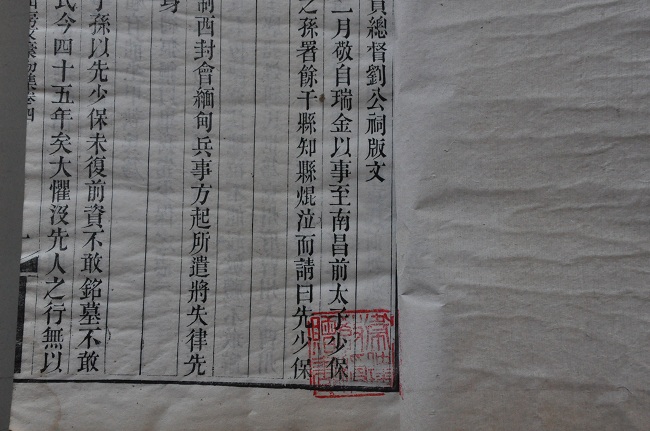 總督劉公祠版文
二月敬自瑞金以事至南昌前太子少保
之孫署餘干縣知縣焜泣而請曰先少保
制西封會緬甸兵事方起所遣將失律先
身
子孫以先少保未復前資不敢銘墓不敢
氏今四十五年矣大懼沒先人之行無以
集卷四